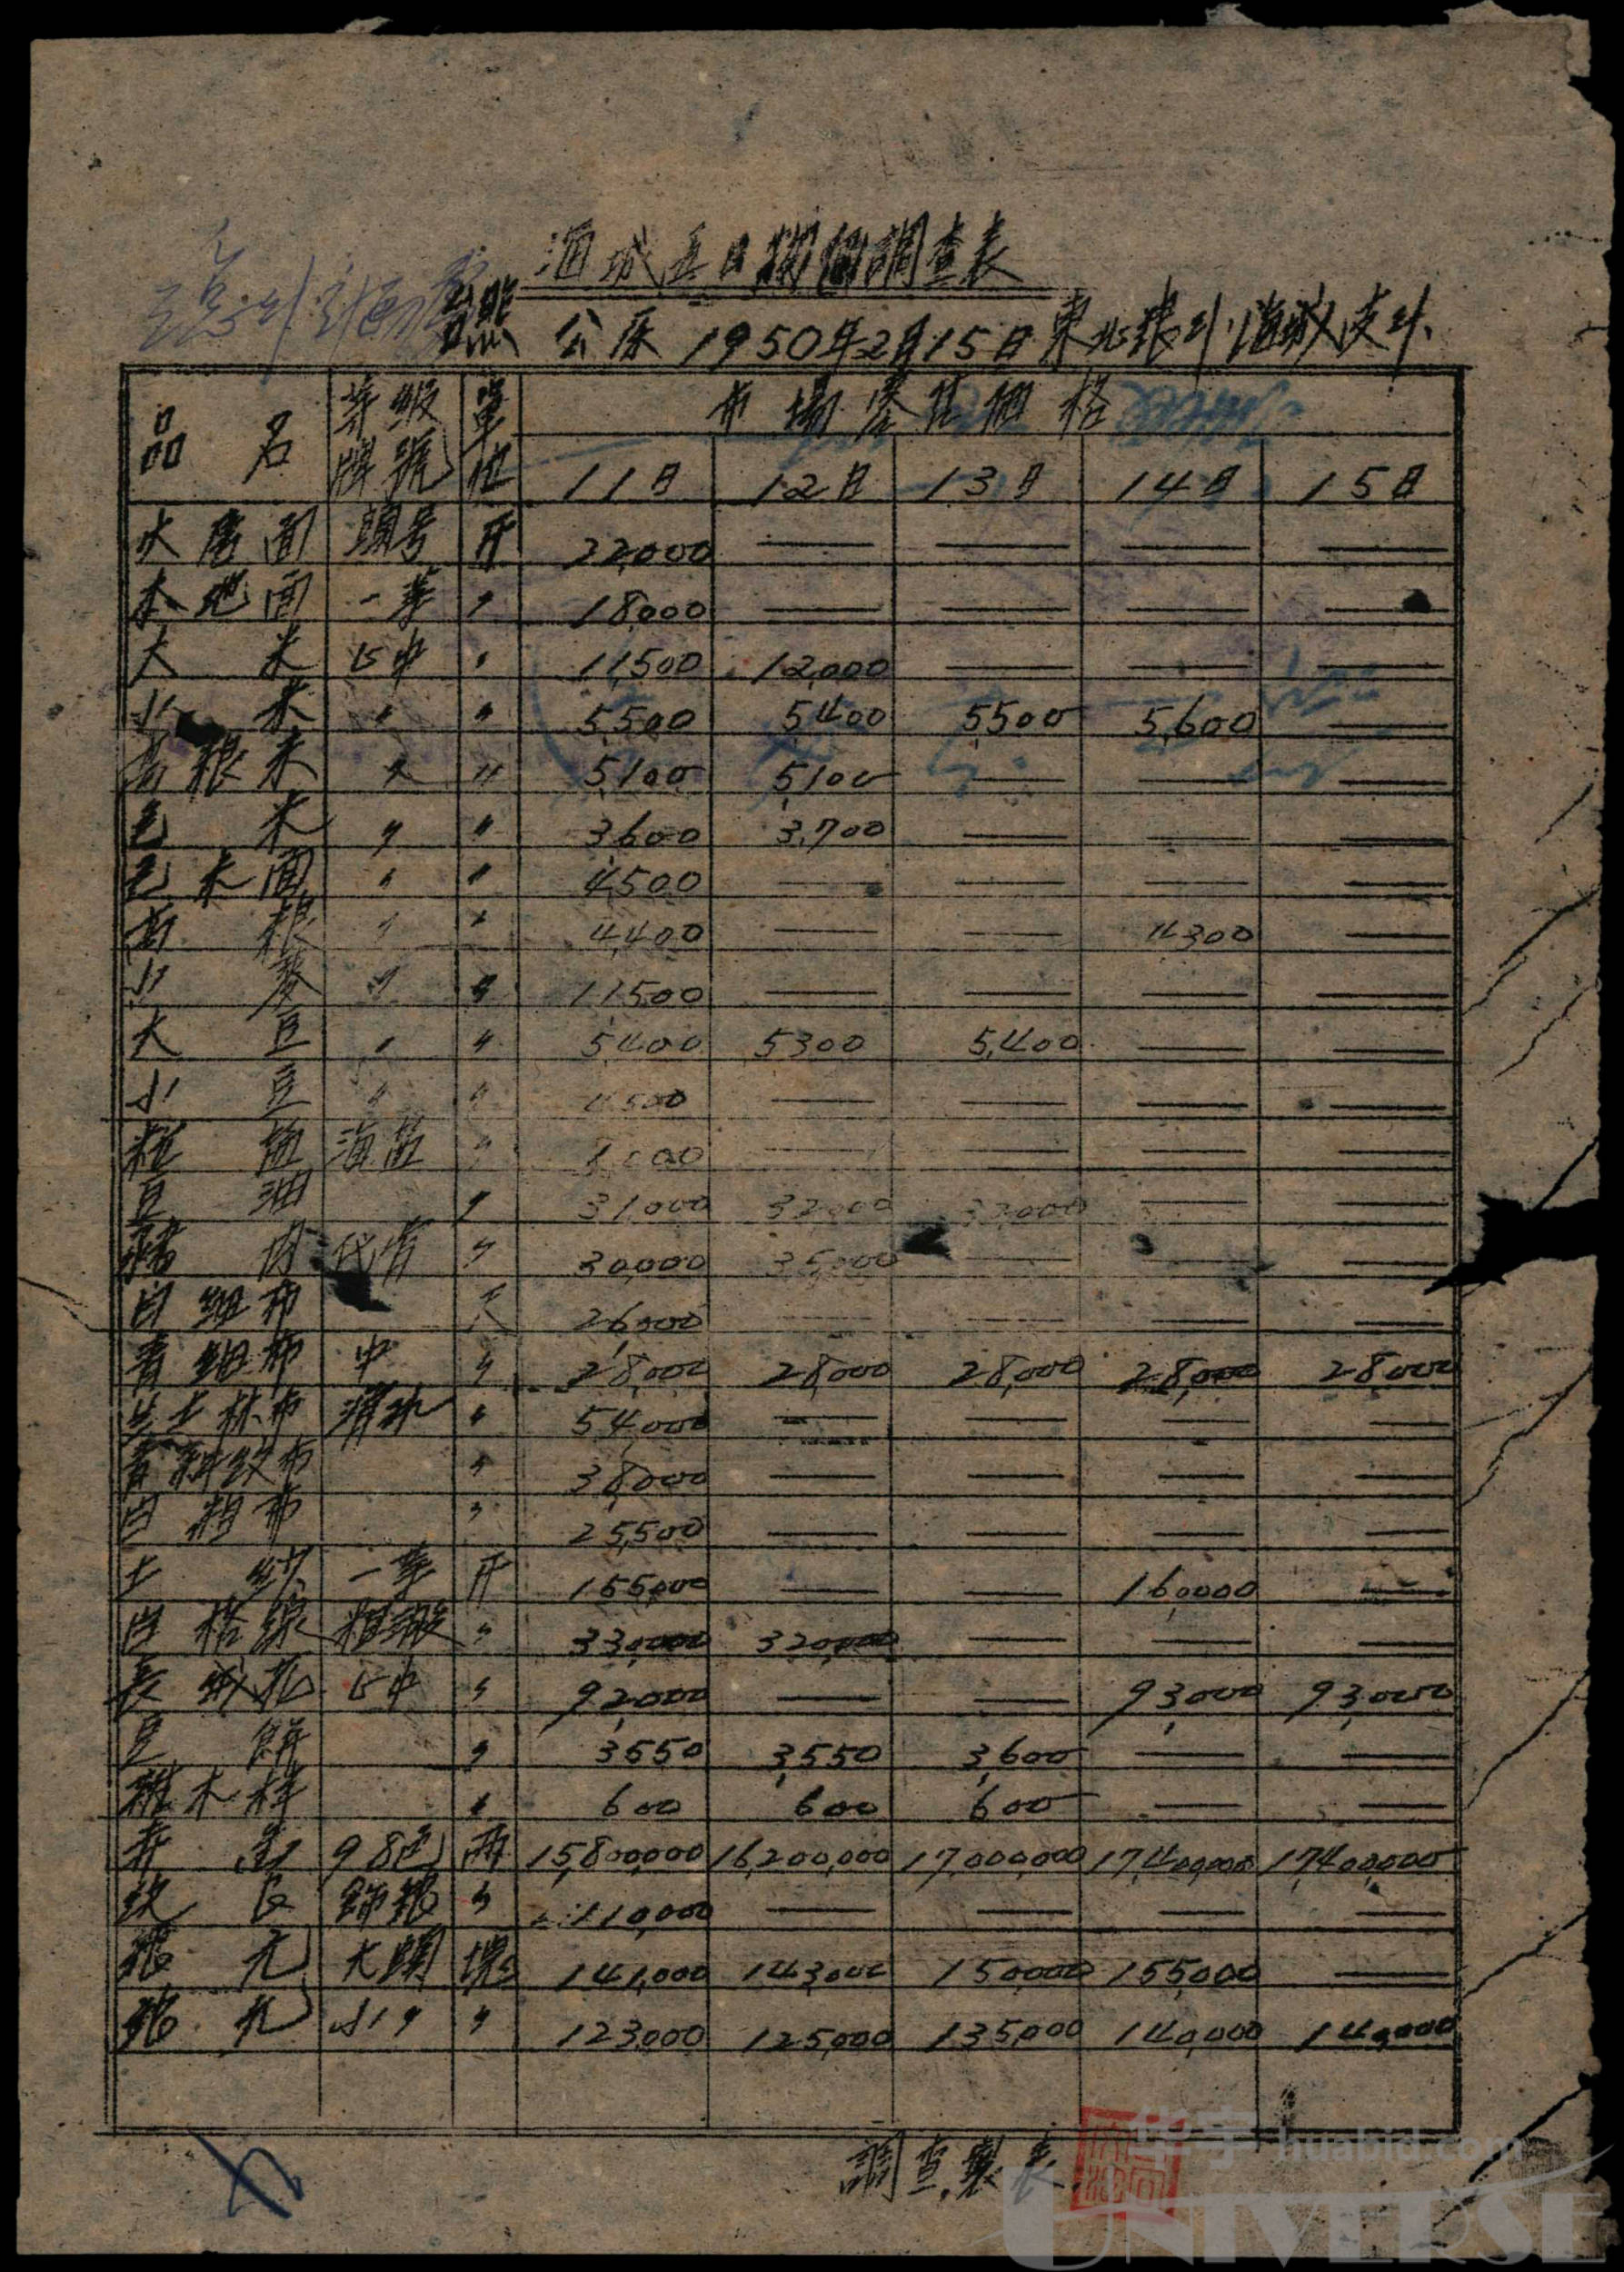 海城五日物價調查表
公历 1950年2月15日 東北銀行海城支行
品名 等級牌號 單位 市場零售価格
11日 12日 13日 14日 15日
大磨面 頭号 斤 22,000 — — — —
本地面 一等 〃 18,000 — — — —
大米 比中 〃 11,500 12,000 — — —
小米 〃 〃 5,500 5,400 5,500 5,600 —
高粮米 〃 〃 5,100 5,100 — — —
包米 〃 〃 3,600 3,700 — — —
包米面 〃 〃 4,500 — — — —
高粮 〃 〃 4,400 — — 4,300 —
小麥 〃 〃 11,500 — — — —
大豆 〃 〃 5,400 5,300 5,400 — —
小豆 〃 〃 4,500 — — — —
粒塩 海塩 〃 — — — —
豆油 〃 31,000 32,000 — —
猪肉 代骨 〃 30,000 35,000 — — —
白細布 尺 26,000 — — — —
青細布 中 〃 28,000 28,000 28,000 28,000 28,000
士林布 〃 54,000 — — — —
青斜紋布 〃 38,000 — — — —
白粗布 〃 25,500 — — — —
土紗 一等 斤 155,000 — — 160,000 —
白棉線 粗級 〃 330,000 320,000 — — —
長絨花 比中 〃 92,000 — — 93,000 93,000
豆餅 〃 3,550 3,550 3,600 — —
雜木柈 〃 600 600 600 — —
赤金 98色 両 15,800,000 16,200,000 17,000,000 17,400,000 17,400,000
紋艮 飾銀 〃 110,000 — — — —
銀元 大頭 塊 141,000 143,000 150,000 155,000 —
銀元 小〃 〃 123,000 125,000 135,000 140,000 140,000
調查製表
华宇 huabid.com
UNIVERSE